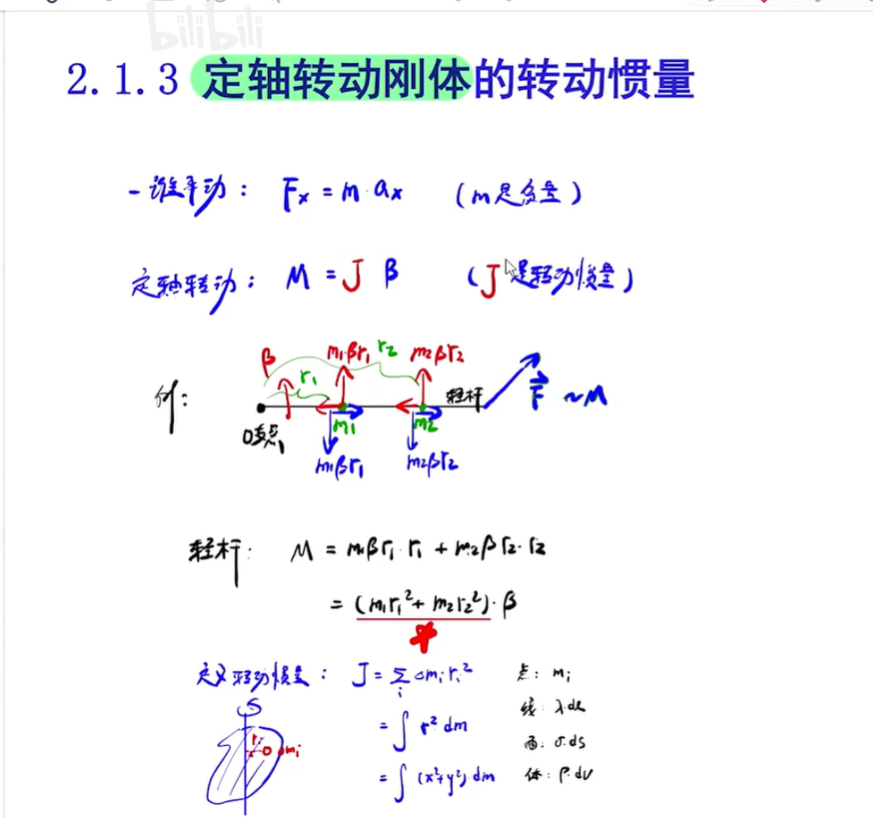 bilibili
2.1.3 定轴转动刚体的转动惯量
一维平动： Fx = m·ax （m是质量）
定轴转动： M = J β （J是转动惯量）
β m₁βr₁ r₂ m₂βr₂
r₁
例： 轻杆 F⃗ ~M
O支点 m₁ m₂
m₁βr₁ m₂βr₂
轻杆： M = m₁βr₁·r₁ + m₂βr₂·r₂
= (m₁r₁²+ m₂r₂²)·β
定义转动惯量： J = ∑ᵢ Δmᵢrᵢ² 点：mᵢ
线：λ·dl
= ∫ r² dm
rᵢ Δmᵢ 面：σ·ds
= ∫ (x²+y²) dm 体：ρ·dv